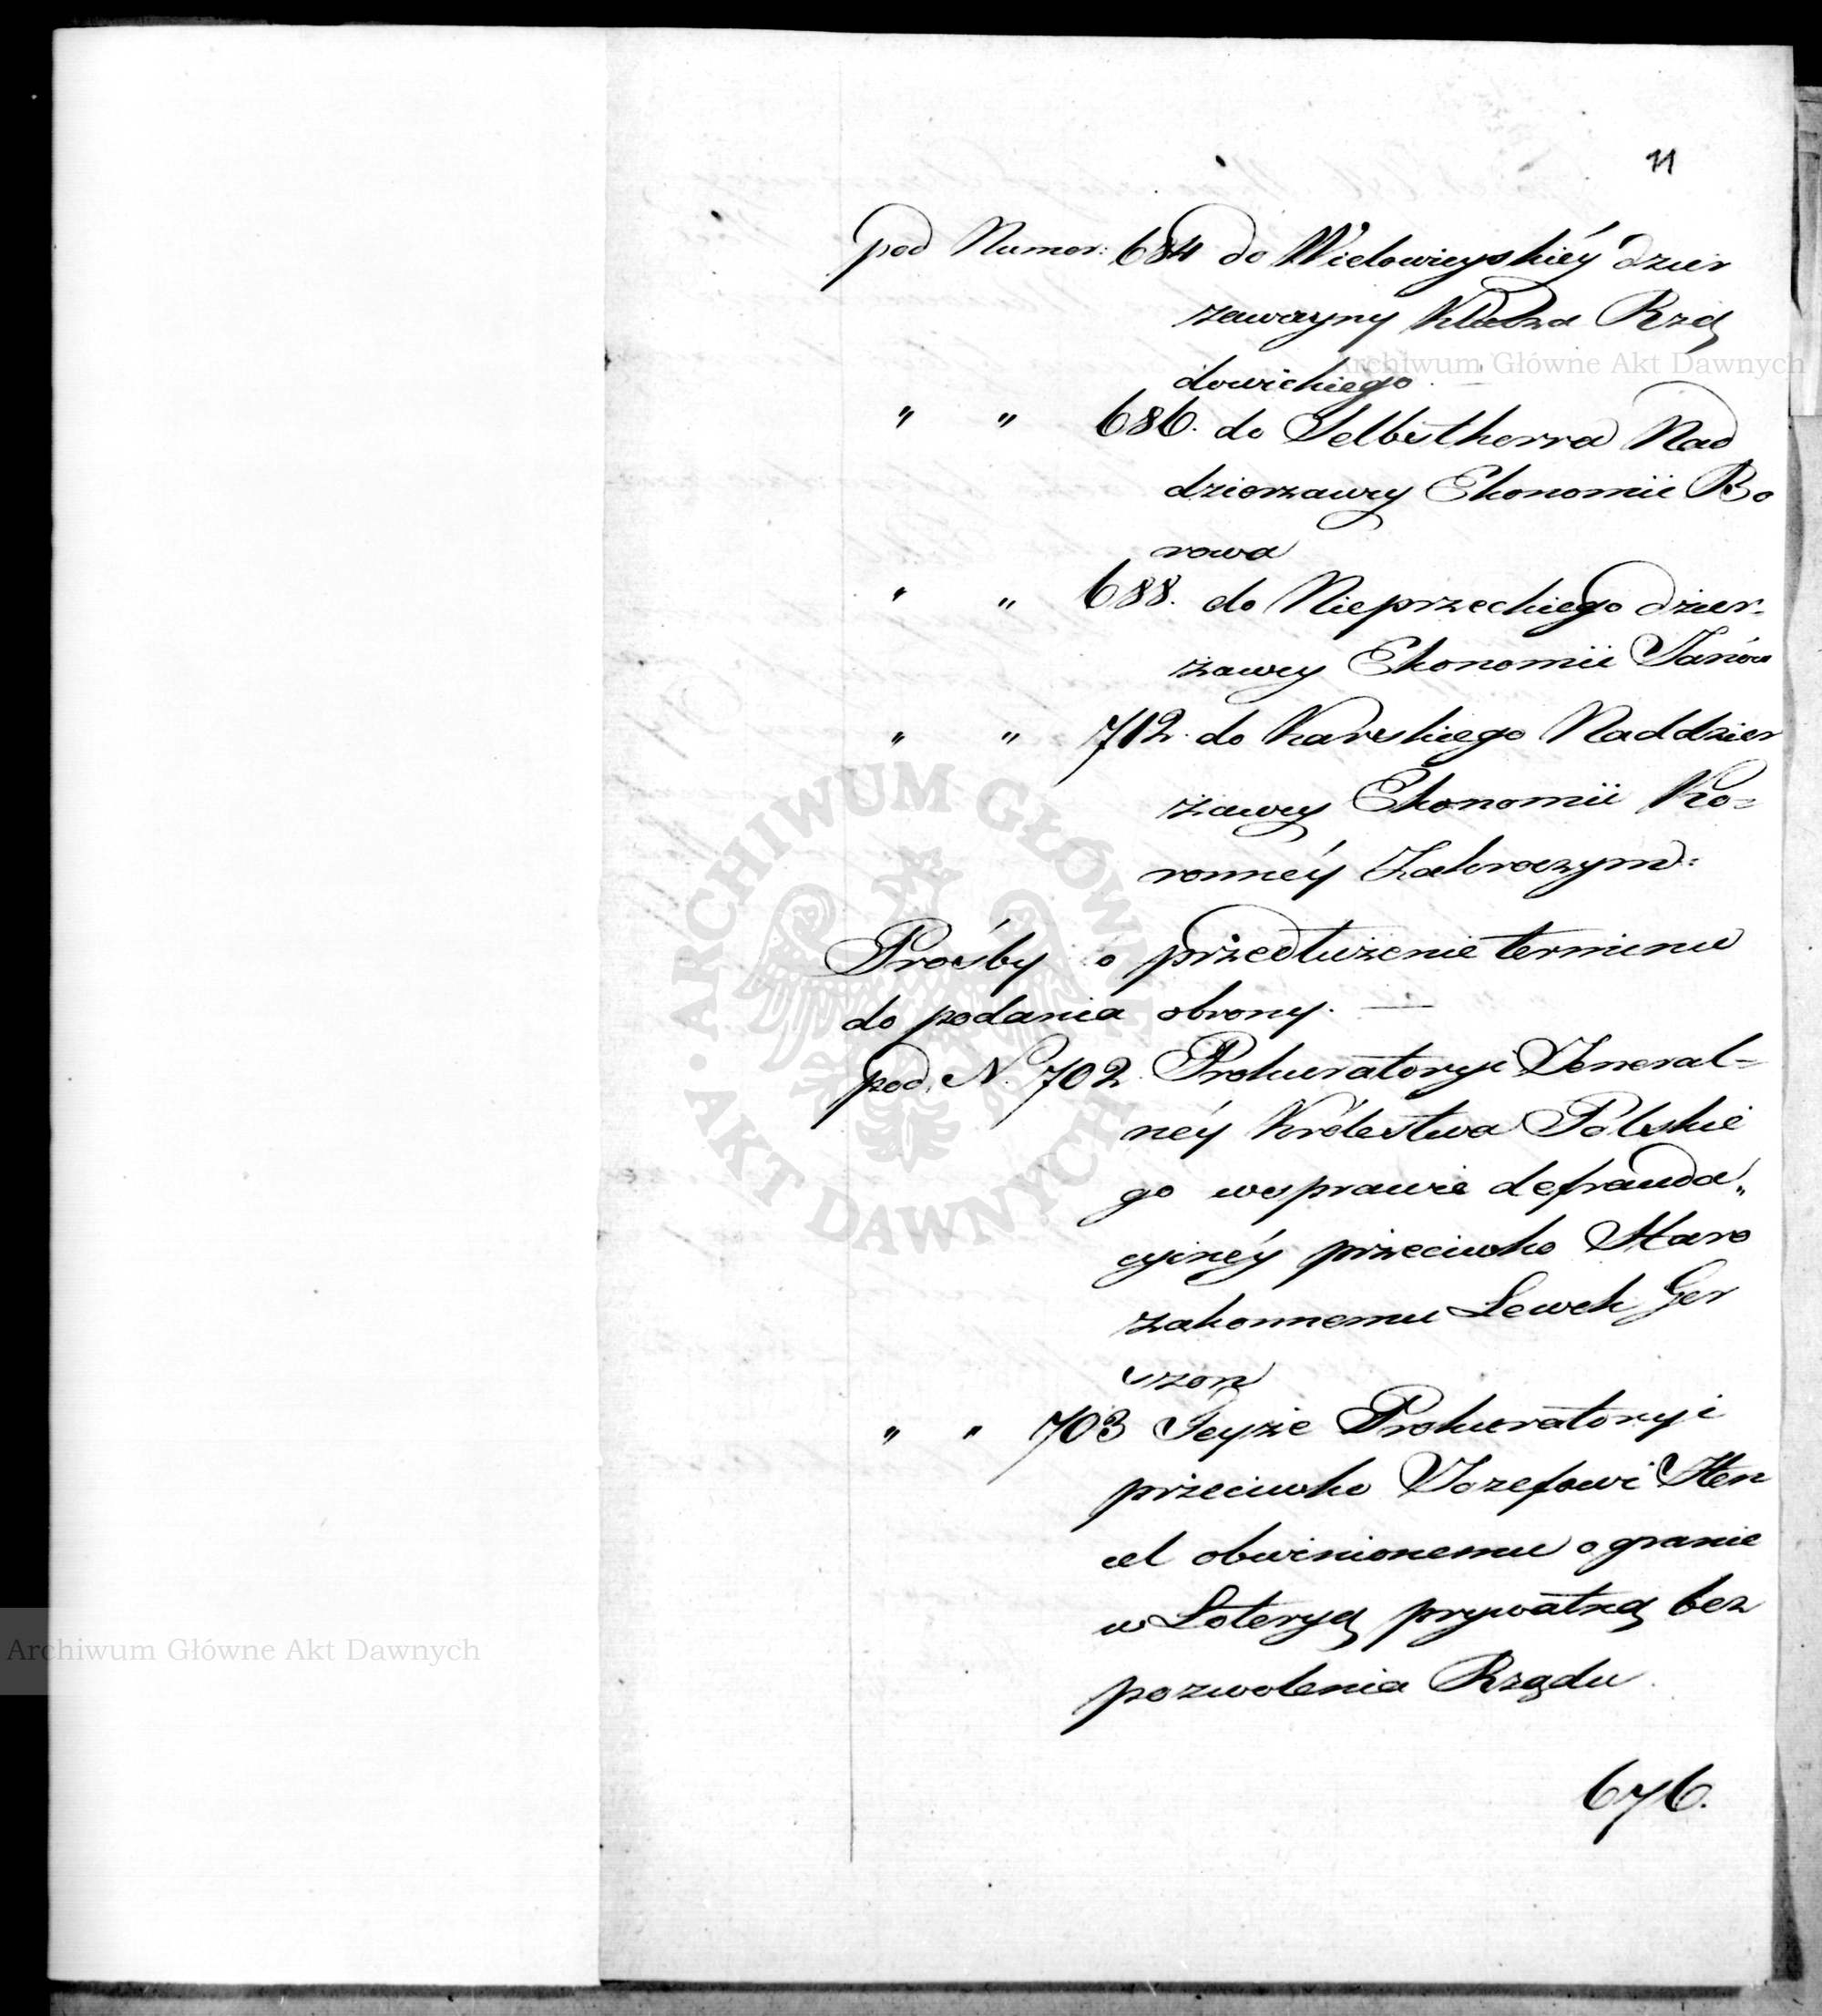 11
pod Numer: 684 do Wielowieyskiéy dzier
zawczyny Klucza Rzą
dowickiego
" " 686. do Selbstherra Nad
dzierzawcy Ekonomii Bo
rowa
" " 688. do Nieprzeckiego dzier-
żawcy Ekonomii Janów
" " 712. do Karskiego Naddzier
żawcy Ekonomii Ko-
ronnéy Zakroczym:
Prośby o przedłużenie terminu
do podania obrony. —
pod N. 702. Prokuratoryi Jeneral-
néy Królestwa Polskie
go wsprawie defrauda„
cyinéy przeciwko Staro
zakonnemu Lewek Ger
szon
" " 703 Teyże Prokuratoryi
przeciwko Jozefowi Hen
cel obwinionemu o granie
w Loteryą prywatną bez
pozwolenia Rządu.
676.
Archiwum Główne Akt Dawnych
ARCHIWUM GŁÓWNE AKT DAWNYCH
Archiwum Główne Akt Dawnych